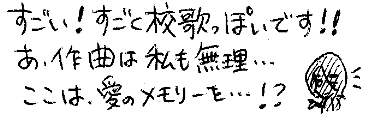 すごい!すごく校歌っぽいです!!
あ、作曲は私も無理…
ここは、愛のメモリーを…!?